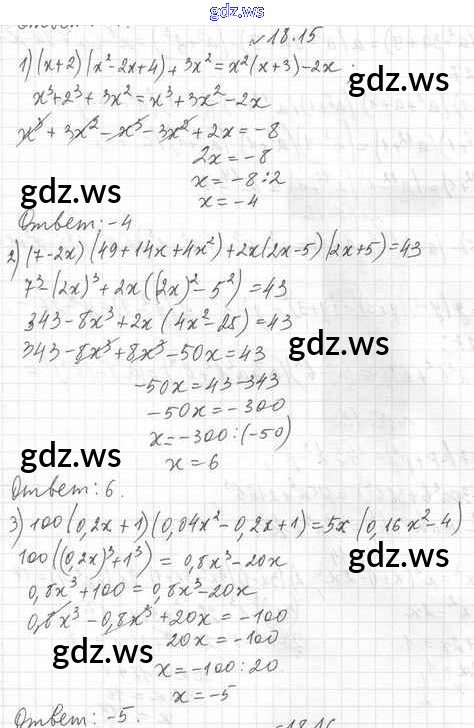 gdz.ws
№18.15
1) (x+2)(x²-2x+4)+3x²=x²(x+3)-2x;
x³+2³+3x²=x³+3x²-2x
x³+3x²-x³-3x²+2x=-8
2x=-8
x=-8:2
x=-4
gdz.ws
gdz.ws
Ответ: -4
2) (7-2x)(49+14x+4x²)+2x(2x-5)(2x+5)=43
7³-(2x)³+2x((2x)²-5²)=43
343-8x³+2x(4x²-25)=43
343-8x³+8x³-50x=43
gdz.ws
-50x=43-343
-50x=-300
x=-300:(-50)
x=6
gdz.ws
Ответ: 6.
3) 100(0,2x+1)(0,04x²-0,2x+1)=5x(0,16x²-4)
100((0,2x)³+1³)=0,8x³-20x
gdz.ws
0,8x³+100=0,8x³-20x
0,8x³-0,8x³+20x=-100
20x=-100
gdz.ws
x=-100:20
x=-5
Ответ: -5.